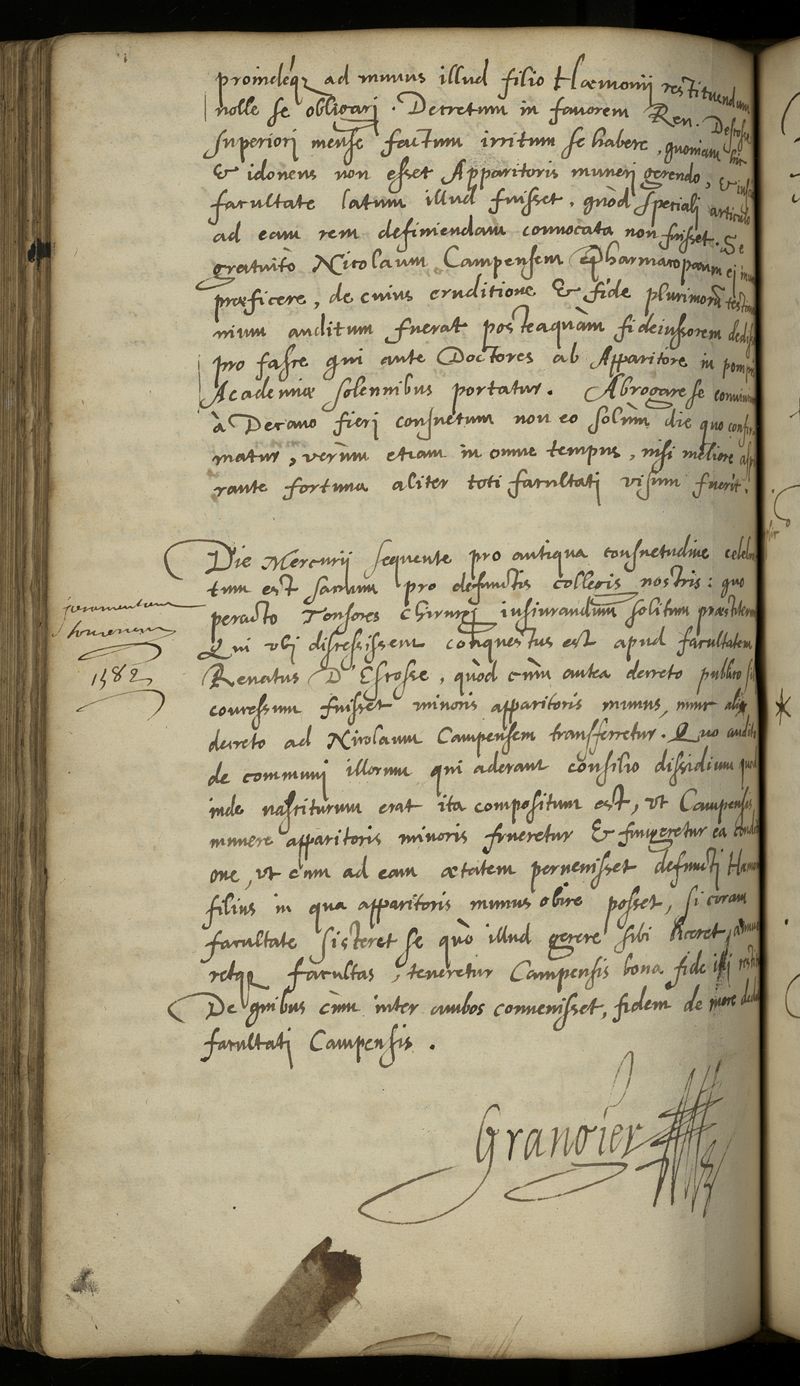 proindeq; ad munus illud filio Hæmonij restituendum
nolle se obligari. Decretum in favorem Ren. Destosse
superiori mense factum irritum se habere, quoniam hic
& idoneus non esset Apparitoris muneri gerendo, &
facultate latum illud fuisset, quòd speciali articulo
ad eam rem definiendam convocata non fuisset. Se
gratuito Nicolaum Campensem Pharmacopæum ei
præficere, de cuius eruditione & fide plurimorū
nium auditum fuerat posteaquàm fideiussorem
pro fasce qui ante Doctores ab Apparitore in
Academiæ solennibus portatur. Abrogare se
à Decano fieri consuetum non eo solùm die quo
matur, verùm etiam in omne tempus, nisi meliore
rante fortuna aliter toti facultati visum fuerit.
Die Mercurij sequente pro antiqua consuetudine
tum est sacrum pro defunctis collegis nostris: quo
peracto Tonsores Chirurgi iusiurandum solitum
Qui ubi discessissent conquestus est apud facultatem
Renatus D'Escosse, quòd cùm antea decreto publico
concessum fuisset minoris apparitoris munus, nunc
decreto ad Nicolaum Campensem transferretur. Quo
de communi illorum qui aderant consilio dissidium
inde nasciturum erat ita compositum est, ut Campensis
munere apparitoris minoris frueretur & fungeretur ea
one, ut cùm ad eam ætatem pervenisset defuncti
filius in qua apparitoris munus obire posset, si coram
facultate sisteret se quò illud gerere sibi liceret,
retq; facultas, teneretur Campensis bona fide
De quibus cùm inter ambos convenisset, fidem de more
facultati Campensis.
juramentum
tonsorum
1582
Grangier